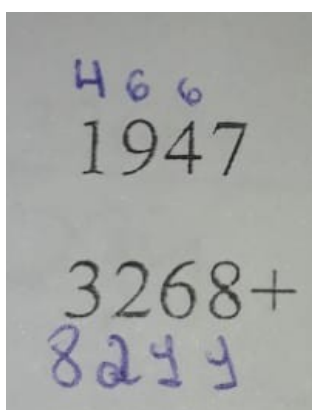 4 6 6
1947
3268+
82yy